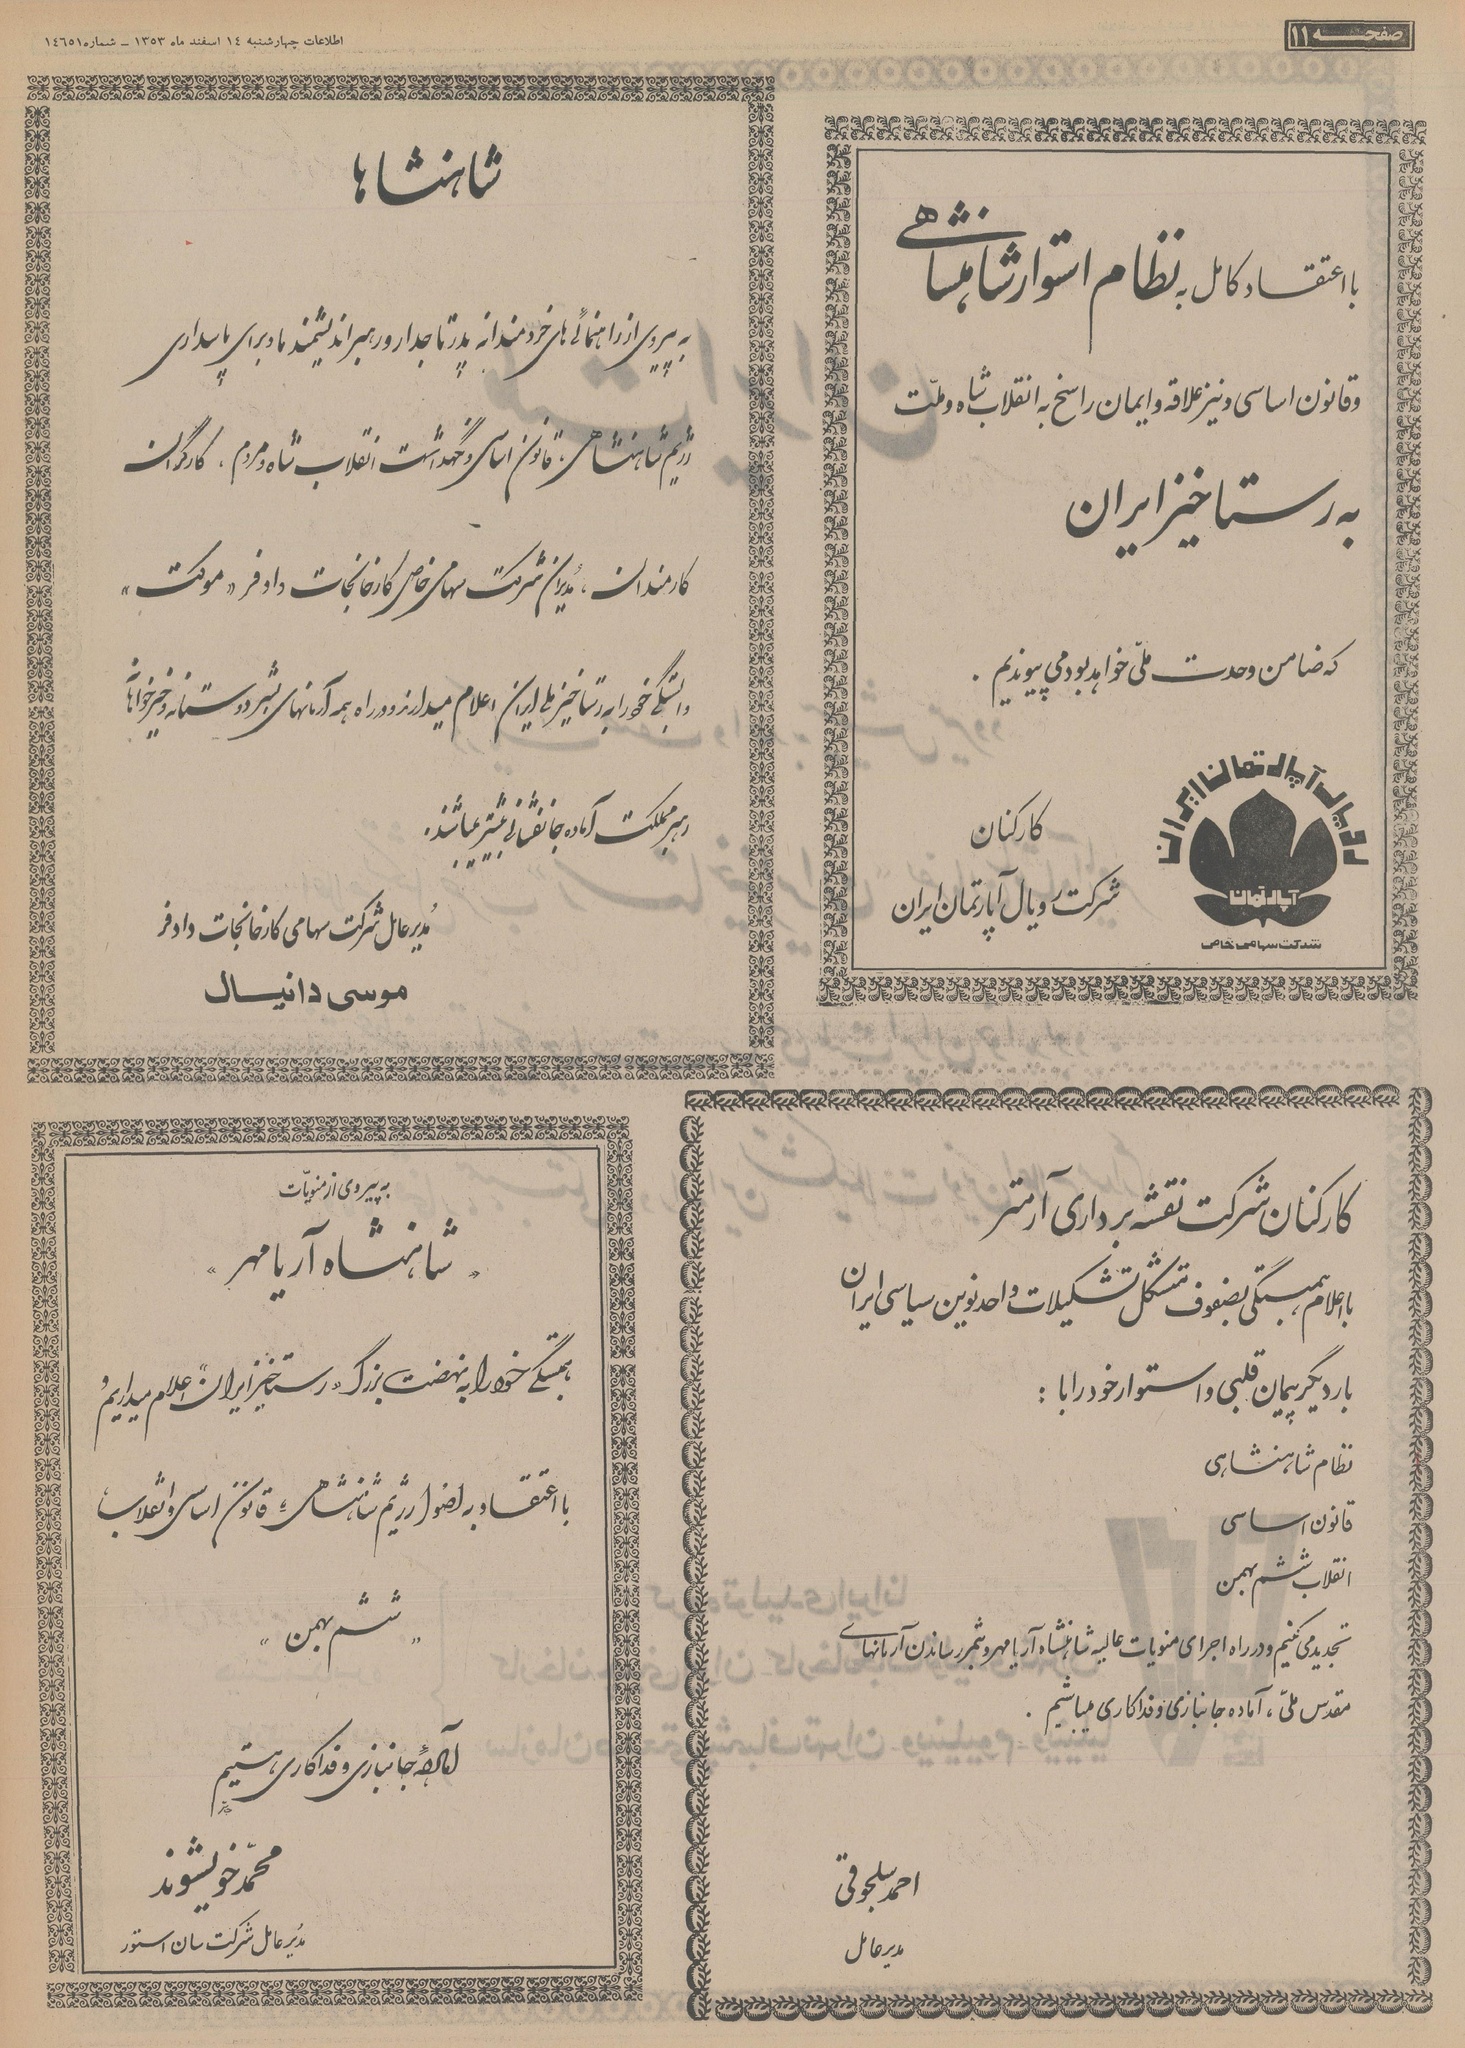 صفحه ۱۱
اطلاعات چهارشنبه ۱٤ اسفند ماه ۱۳۵۳ ــ شماره ۱٤٦۵۱
با اعتقاد کامل به نظام استوار شاهنشاهی
و قانون اساسی و نیز علاقه و ایمان راسخ به انقلاب شاه و ملّت
به رستاخیز ایران
که ضامن وحدت ملّی خواهد بود می پیوندیم .
رویال آپارتمان ایران
آپارتمان
شرکت سهامی خاص
کارکنان
شرکت رویال آپارتمان ایران
شاهنشاها
به پیروی از راهنمائی های خردمندانه پدر تاجدار و رهبر اندیشمند ما و برای پاسداری
رژیم شاهنشاهی ، قانون اساسی و نگهداشت انقلاب شاه و مردم ، کارگران
کارمندان ، مدیران شرکت سهامی خاص کارخانجات دادفر «موکت»
وابستگی خود را به رستاخیز ملی ایران اعلام میدارند و در راه همه آرمانهای بشردوستانه و خیرخواهانه
رهبر مملکت آماده جانفشانی بیشتر میباشند.
مدیرعامل شرکت سهامی کارخانجات دادفر
موسی دانیال
کارکنان شرکت نقشه برداری آرمتر
با اعلام همبستگی بصفوف متشکل تشکیلات واحد نوین سیاسی ایران
بار دیگر پیمان قلبی و استوار خود را با :
نظام شاهنشاهی
قانون اساسی
انقلاب ششم بهمن
تجدید می کنیم و در راه اجرای منویات عالیه شاهنشاه آریامهر و بثمر رساندن آرمانهای
مقدس ملّی ، آماده جانبازی و فداکاری میباشیم .
احمد سلجوقی
مدیر عامل
به پیروی از منویّات
« شاهنشاه آریامهر »
همبستگی خود را به نهضت بزرگ «رستاخیز ایران» اعلام میداریم و
با اعتقاد به اصول رژیم شاهنشاهی ، قانون اساسی و انقلاب
« ششم بهمن »
آماده جانبازی و فداکاری هستیم
محمّد خویشوند
مدیرعامل شرکت سان استور